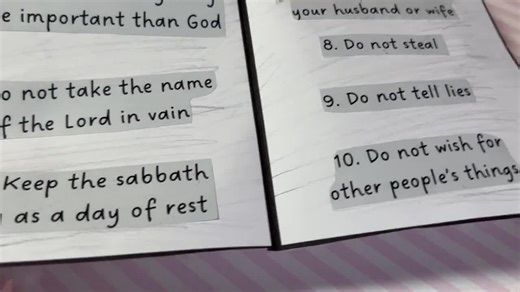 e important than God
o not take the name
f the Lord in vain
Keep the sabbath
as a day of rest
your husband or wife
8. Do not steal
9. Do not tell lies
10. Do not wish for
other people's things